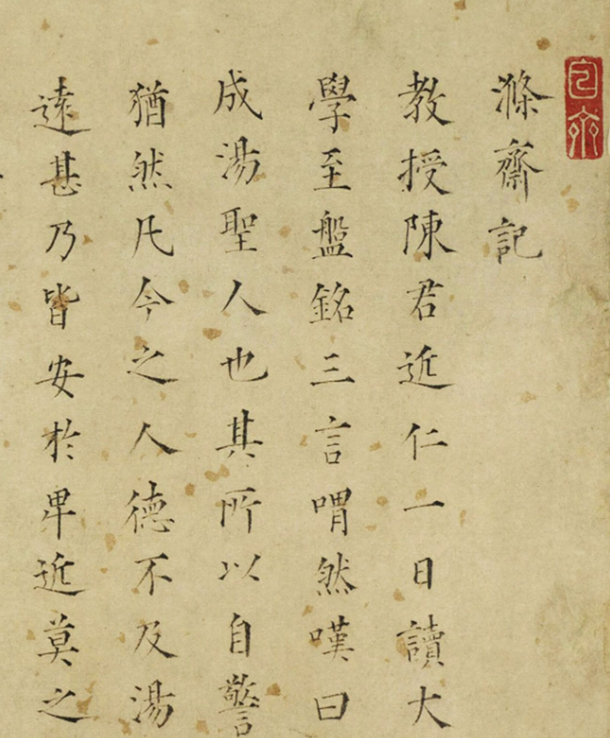 滌齋記
教授陳君近仁一日讀大
學至盤銘三言喟然嘆曰
成湯聖人也其所以自警
猶然凡今之人德不及湯
遠甚乃皆安於卑近莫之